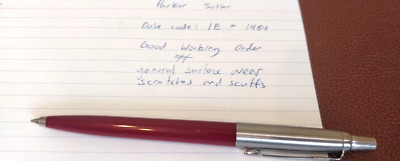 Parker Jotter
Date code: IE *
Good Working Order
general surface wear
scratches and scuffs